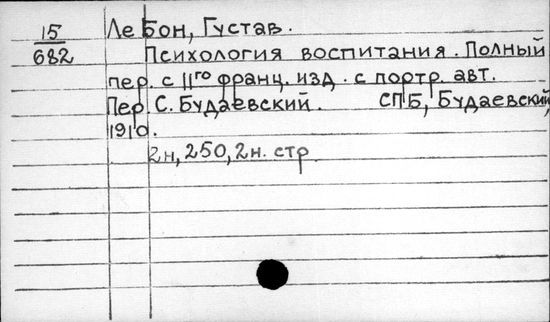 15/682
Ле Бон, Густав.
Психология воспитания. Полный
пер. с 11го франц. изд. с портр. авт.
Пер С. Будаевский. СПБ, Будаевский,
1910.
2н, 250, 2н. стр